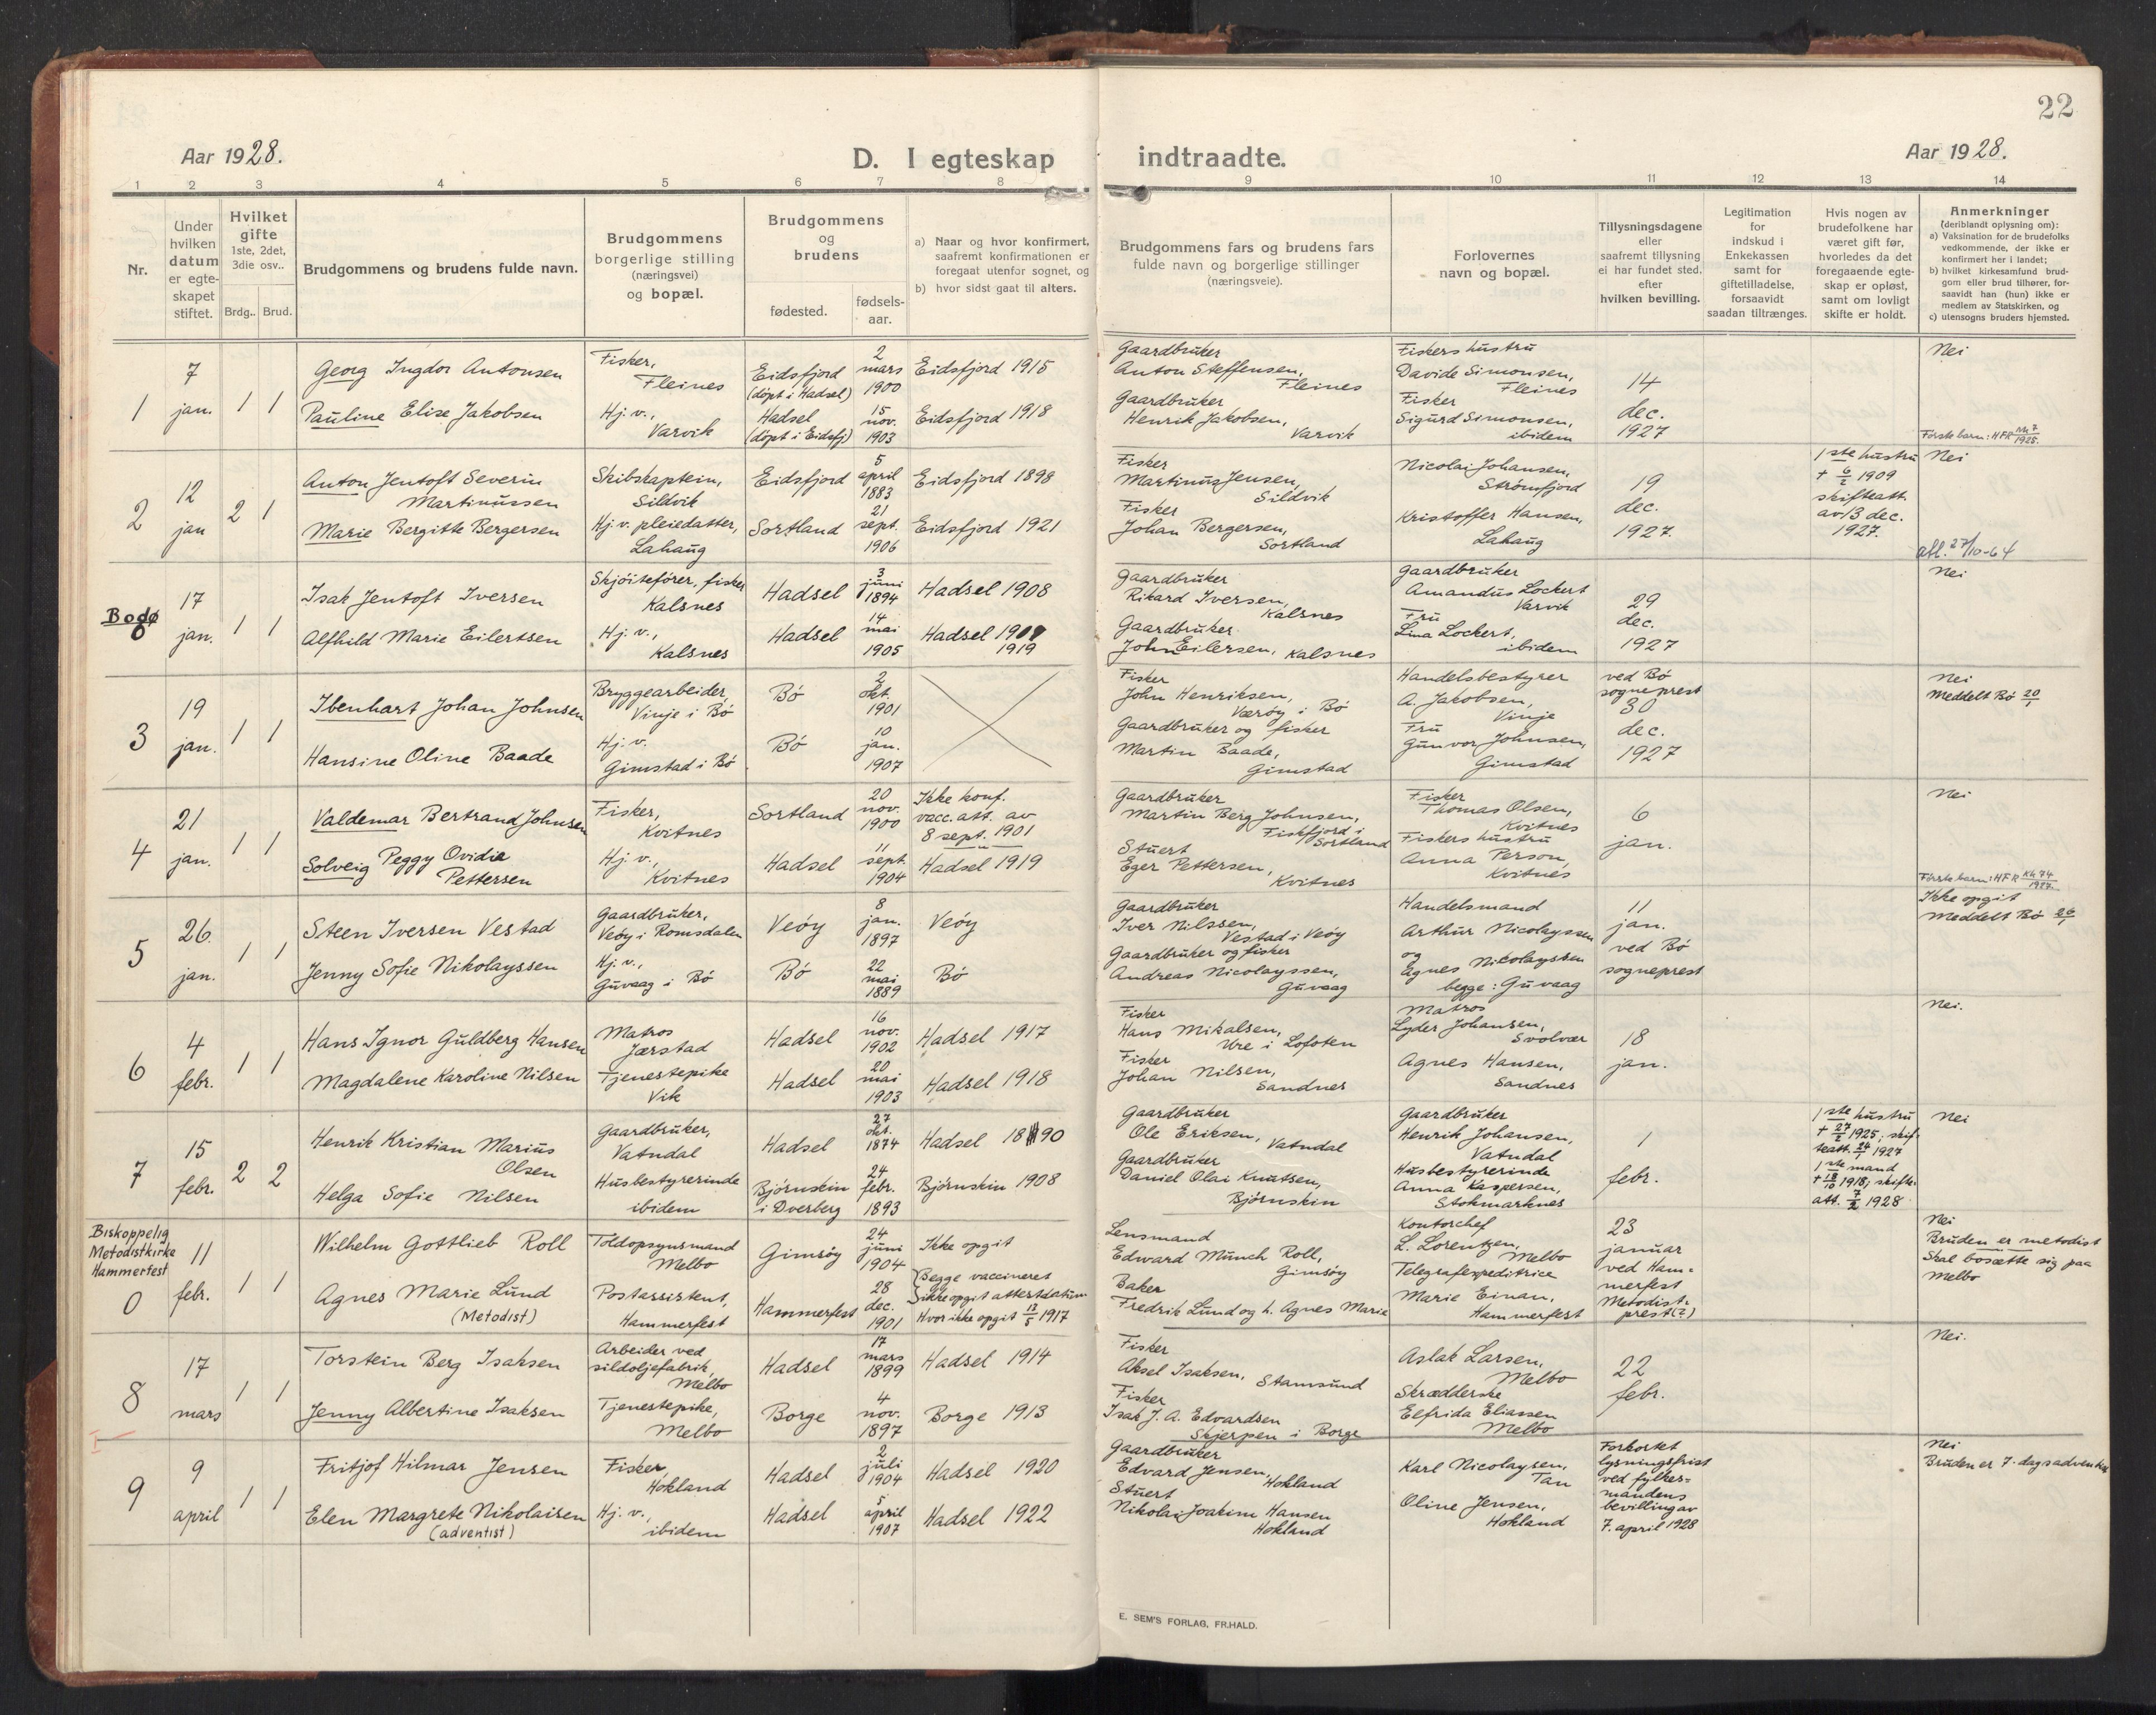 22
Aar 1928.
D. I egteskap indtraadte.
Aar 1928.
1 2 3 4 5 6 7 8 9 10 11 12 13 14
Nr.
Under hvilken datum er egte-skapet stiftet.
Hvilket gifte
1ste, 2det, 3die osv..
Brdg.. Brud.
Brudgommens og brudens fulde navn.
Brudgommens borgerlige stilling (næringsvei) og bopæl.
Brudgommens og brudens
fødested.
fødsels-aar.
a) Naar og hvor konfirmert, saafremt konfirmationen er foregaat utenfor sognet, og
b) hvor sidst gaat til alters.
Brudgommens fars og brudens fars fulde navn og borgerlige stillinger (næringsveie).
Forlovernes navn og bopæl.
Tillysningsdagene eller saafremt tillysning ei har fundet sted. efter hvilken bevilling.
Legitimation for indskud i Enkekassen samt for giftetilladelse, forsaavidt saadan tiltrænges.
Hvis nogen av brudefolkene har været gift før, hvorledes da det foregaaende egte-skap er opløst, samt om lovligt skifte er holdt.
Anmerkninger
(deriblandt oplysning om):
a) Vaksination for de brudefolks vedkommende, der ikke er konfirmert her i landet;
b) hvilket kirkesamfund brud-gom eller brud tilhører, for-saavidt han (hun) ikke er medlem av Statskirken, og
c) utensogns bruders hjemsted.
1
7 jan.
1 1
Georg Ingdor Antonsen
Fisker, Fleines
Eidsfjord (döpt i Hadsel)
2 mars 1900
Eidsfjord 1915
Pauline Elise Jakobsen
Hj. v., Varvik
Hadsel (döpt i Eidsfj)
15 nov. 1903
Eidsfjord 1918
Gaardbruker Anton Steffensen, Fleines
Gaardbruker Henrik Jakobsen, Varvik
Fiskers hustru Davide Simonsen, Fleines
Fisker Sigurd Simonsen, ibidem
14 dec. 1927
Nei
Förste barn: HFR Nk 7 1925.
2
12 jan
2 1
Anton Jentoft Severin Martinussen
Skibskaptein, Sildvik
Eidsfjord
5 april 1883
Eidsfjord 1898
Marie Bergitte Bergersen
Hj. v. pleiedatter, Lahaug
Sortland
21 sept. 1906
Eidsfjord 1921
Fisker Martinus Jensen, Sildvik
Fisker Johan Bergersen, Sortland
Nicolai Johansen, Strömsfjord
Kristoffer Hansen, Lahaug
19 dec. 1927.
1ste hustru + 6/2 1909 skifteatt. av 13 dec. 1927.
Nei
att. 27/10-64
Bodø
0
17 jan.
1 1
Isak Jentoft Iversen
Skjöiteförer, fisker Kalsnes
Hadsel
3 juni 1894
Hadsel 1908
Alfhild Marie Eilertsen
Hj. v., Kalsnes
Hadsel
14 mai 1905
Hadsel 1919
Gaardbruker Rikard Iversen, Kalsnes
Gaardbruker John Eilersen, Kalsnes
Gaardbruker Amandus Lockert Varvik
Fru Lina Lockert, ibidem
29 dec. 1927
Nei
3
19 jan.
1 1
Ibenhart Johan Johnsen
Bryggearbeider, Vinje i Bö
Bö
2 okt. 1901
Hansine Oline Baade
Hj. v. Gimstad i Bö
Bö
10 jan. 1907
Fisker John Henriksen, Væröy i Bö
Gaardbruker og fisker Martin Baade, Gimstad
Handelsbestyrer A. Jakobsen, Vinje
Fru Gunvor Johnsen, Gimstad
ved Bö sogneprest 30 dec. 1927
Nei
Meddelt Bö 20/1
4
21 jan.
1 1
Valdemar Bertrand Johnsen
Fisker, Kvitnes
Sortland
20 nov. 1900
Ikke konf. vacc. att. av 8 sept. 1901
Solveig Peggy Ovidie Pettersen
Hj. v., Kvitnes
Hadsel
11 sept. 1904
Hadsel 1919
Gaardbruker Martin Berg Johnsen, Fiskfjord i Sortland
Stuert Eger Pettersen, Kvitnes
Fisker Thomas Olsen, Kvitnes
Fiskers hustru Anna Person, Kvitnes
6 jan.
Nei
Förste barn: HFR Kk 74 1927.
5
26. jan.
1 1
Steen Iversen Vestad
Gaardbruker, Veöy i Romsdalen
Veöy
8 jan. 1897
Veöy
Jenny Sofie Nikolayssen
Hj. v., Guvaag i Bö
Bö
22 mai 1889
Bö
Gaardbruker Iver Nilssen, Vestad i Veöy
Gaardbruker og fisker Andreas Nicolayssen, Guvaag
Handelsmand Arthur Nicolayssen og Agnes Nikolayssen begge: Guvaag
11 jan. ved Bö sogneprest
Ikke opgit
Meddelt Bö 26/1
6
4 febr.
1 1
Hans Ignor Guldberg Hansen
Matros Jærstad
Hadsel
16 nov. 1902
Hadsel 1917
Magdalene Karoline Nilsen
Tjenestepike Vik
Hadsel
20 mai 1903
Hadsel 1918
Fisker Hans Mikalsen, Ure i Lofoten
Fisker Johan Nilsen, Sandnes
Matros Lyder Johansen, Svolvær
Agnes Hansen, Sandnes
18 jan.
Nei.
7
15 febr.
2 2
Henrik Kristian Marius Olsen
Gaardbruker, Vatndal
Hadsel
27 okt. 1874
Hadsel 1890
Helga Sofie Nilsen
Husbestyrerinde ibidem
Björnskin i Dverberg
24 febr. 1893
Björnskin 1908
Gaardbruker Ole Eriksen, Vatndal
Gaardbruker Daniel Olai Knutsen, Björnskin
Gaardbruker Henrik Johansen, Vatndal
Husbestyrerinde Anna Kaspersen, Stokmarknes
1 febr.
1ste hustru + 27/2 1925; skif-teatt. 24/1 1927
1ste mand + 18/10 1918; skifte-att. 7/2 1928
Nei
Biskoppelig Metodistkirke Hammerfest
0
11 febr.
1 1
Wilhelm Gottlieb Roll
Toldopsynsmand Melbo
Gimsöy
24 juni 1904
Ikke opgit
Agnes Marie Lund (Metodist)
Postassistent, Hammerfest
Hammerfest
28 dec. 1901
Begge vaccineret ikke opgit attestdatum
Hvor ikke opgit 13/5 1917
Lensmand Edward Münch Roll, Gimsöy
Baker Fredrik Lund og h. Agnes Marie
Kontorchef L. Lorentzen, Melbo
Telegrafexpeditrice Marie Einan, Hammerfest
23 januar ved Ham-merfest Metodist-prest (?)
Nei
Bruden er metodist
Skal bosætte sig paa Melbo
8
17 mars
1 1
Torstein Berg Isaksen
Arbeider ved sildoljefabrik, Melbo
Hadsel
17 mars 1899
Hadsel 1914
Jenny Albertine Isaksen
Tjenestepike, Melbo
Borge
4 nov. 1897
Borge 1913
Fisker Aksel Isaksen, Stamsund
Fisker Isak J. A. Edvardsen Skjerpen i Borge
Aslak Larsen, Melbo
Skrædderske Elfrida Eliassen Melbo
22 febr.
Nei.
9
9 april
1 1
Fritjof Hilmar Jensen
Fisker, Hokland
Hadsel
2 juli 1904
Hadsel 1920
Elen Margrete Nikolaisen (adventist)
Hj. v., ibidem
Hadsel
5 april 1907
Hadsel 1922
Gaardbruker Edvard Jensen, Hokland
Stuert Nikolai Joakim Hansen Hokland
Karl Nicolaysen, Tan
Oline Jensen, Hokland
Forkortet lysningsfrist ved fylkes-mandens bevilling av 7. april 1928
Nei
Bruden er 7. dags adventist
E. SEM'S FORLAG, FR.HALD.